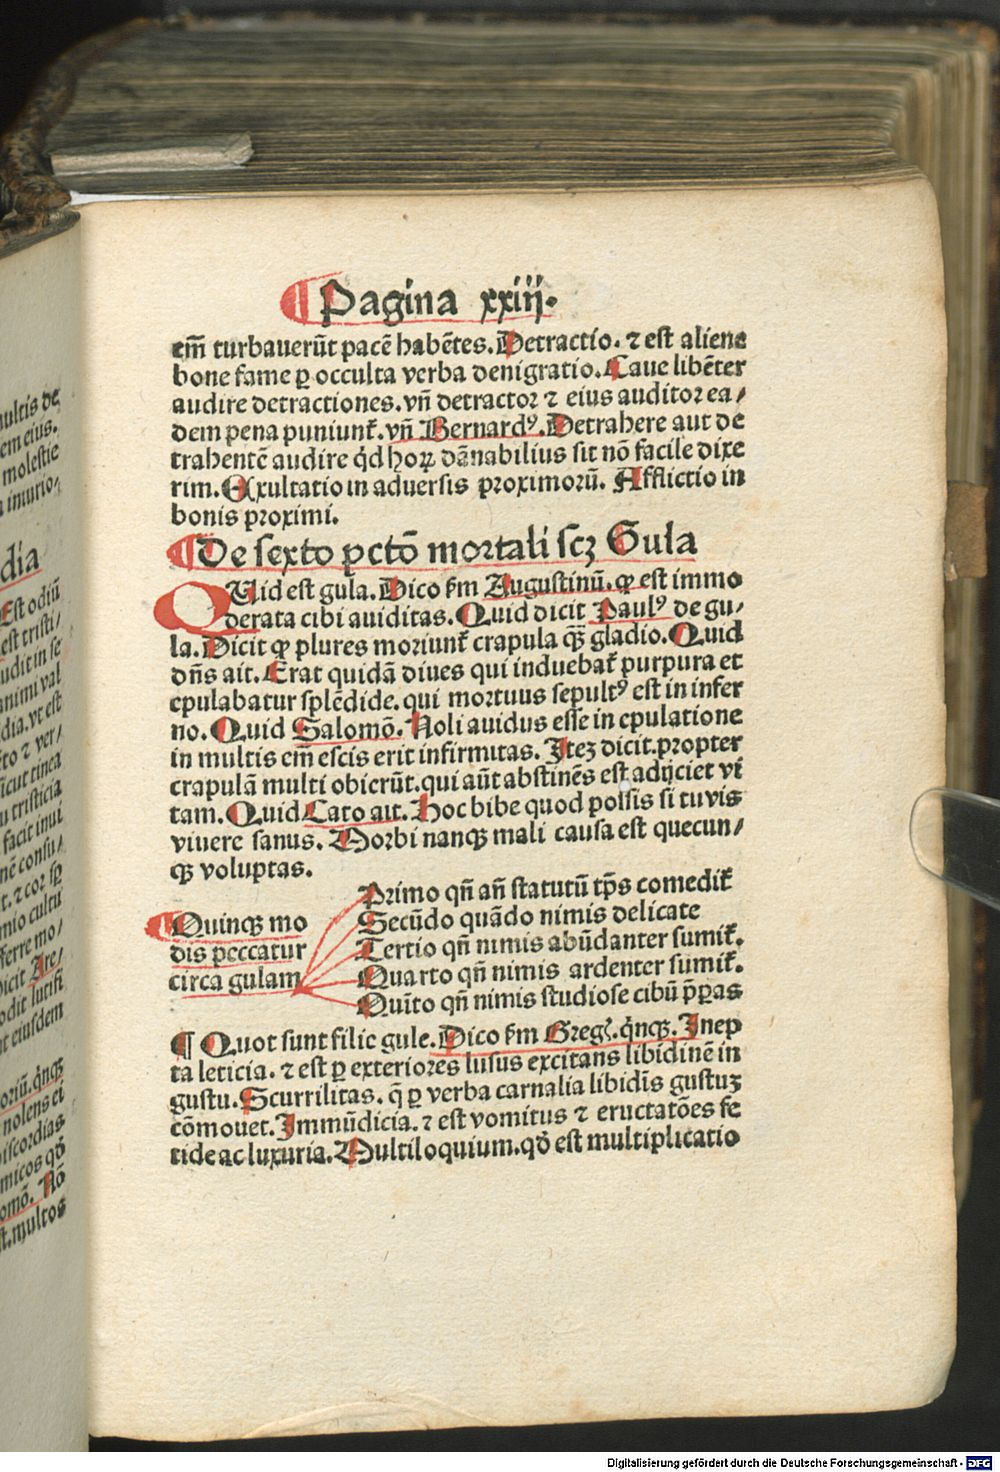 ¶ Pagina xxiij.
em̄ turbauerūt pacē habētes. Detractio. ⁊ est aliene
bone fame ꝑ occulta verba denigratio. Caue libēter
audire detractiones. vn̄ detractor ⁊ eius auditor ea/
dem pena puniunt᷑. vn̄ Bernardꝰ. Detrahere aut de
trahentē audire qd hoꝝ dānabilius sit nō facile dixe
rim. Exultatio in aduersis proximorū. Afflictio in
bonis proximi.
¶ De sexto pctō mortali scꝫ Gula
QUid est gula. Dico ẜm Augustinū. ꝙ est immo
derata cibi auiditas. Quid dicit Paulꝰ de gu/
la. Dicit ꝙ plures moriunt᷑ crapula qꝫ̄ gladio. Quid
dn̄s ait. Erat quidā diues qui induebat᷑ purpura et
epulabatur splēdide. qui mortuus sepultꝰ est in infer
no. Quid Salomō. Noli auidus esse in epulatione
in multis em̄ escis erit infirmitas. Iteꝫ dicit. propter
crapulā multi obierūt. qui aūt abstinēs est adijciet vi
tam. Quid Cato ait. Hoc bibe quod possis si tu vis
viuere sanus. Morbi nanqꝫ mali causa est quecun/
qꝫ voluptas.
¶ Quinqꝫ mo
dis peccatur
circa gulam
Primo qn̄ an̄ statutū tp̄s comedit᷑
Secūdo quādo nimis delicate
Tertio qn̄ nimis abūdanter sumit᷑.
Quarto qn̄ nimis ardenter sumit᷑.
Quīto qn̄ nimis studiose cibū p̄ꝑas
¶ Quot sunt filie gule. Dico ẜm Greg. qnqꝫ. Inep
ta leticia. ⁊ est ꝑ exteriores lusus excitans libidinē in
gustu. Scurrilitas. q̄ ꝑ verba carnalia libidīs gustuꝫ
cōmouet. Immūdicia. ⁊ est vomitus ⁊ eructatōes fe
tide ac luxuria. Multiloquium. qd̄ est multiplicatio
Digitalisierung gefördert durch die Deutsche Forschungsgemeinschaft - DFG